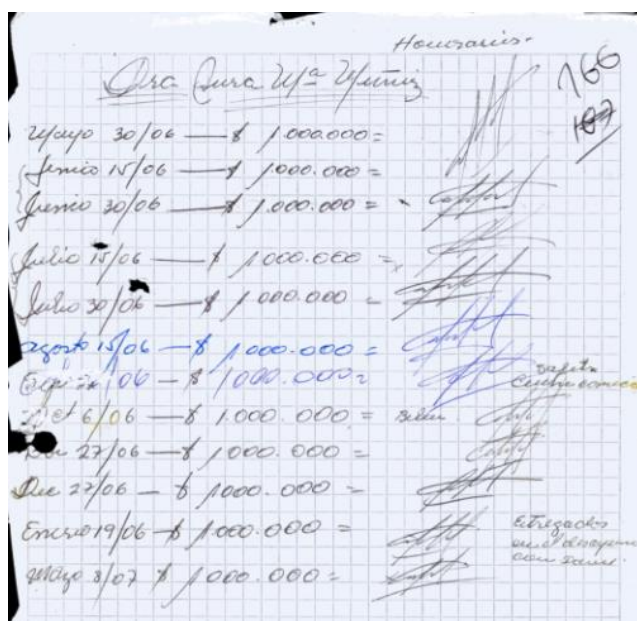 Honorarios.
166
Dra Aura Mª Muñiz
Mayo 30/06 — $ 1.000.000=
Junio 15/06 — $ 1000.000=
Junio 30/06 — $ 1.000.000=
Julio 15/06 — $ 1000.000=
Julio 30/06 — $ 1000.000=
agosto 15/06 — $ 1000.000=
/06 — $ 1000.000=
6/06 — $ 1.000.000=
27/06 — $ 1000.000=
Dic 27/06 — $ 1000.000=
Enero 19/06 — $ 1.000.000=
Entregados
en el desayuno
con
Mayo 8/07 $ 1000.000=